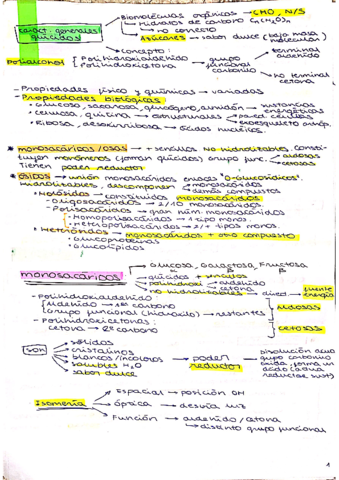 Biomoléculas orgánicas → CHO, N/S
caract. generales glúcidos
→ Hidratos de carbono CnH2On
↳ no correcto
→ Azúcares → sabor dulce (baja masa molecular)
→ Concepto:
Polialcohol { Polihidroxialdehído
Polihidroxicetona
grupo funcional carbonilo
terminal aldehído
no terminal cetona
- Propiedades físico y químicas → variadas
- Propiedades biológicas:
• Glucosa, sacarosa, glucógeno, almidón → sustancias energéticas
• Celulosa, quitina → estructurales → pared células
• Ribosa, desoxirribosa → ácidos nucleicos.
* monosacáridos/OSAS → + sencillos NO hidrolizables, consti-
tuyen monómeros (forman glúcidos) grupo func.
Tienen poder reductor
aldosas
cetosas
* ÓSIDOS → unión monosacáridos enlaces "O-glucosídicos".
Hidrolizables, descomponen
monosacáridos
demás compuestos
• Holósidos → constituidos monosacáridos
- Oligosacáridos → 2/10 monosacáridos.
- Polisacáridos → gran núm. monosacáridos
- Homopolisacáridos → 1 tipo mono.
- Heteropolisacáridos → 2/+ tipos monos.
• Heterósidos → monosacáridos + otro compuesto
- Glucoproteínas
- Glucolípidos
monosacáridos
Glucosa, Galactosa, Fructosa
→ glúcidos + sencillos
→ polihidroxi
aldehído
cetona
→ no hidrolizables → direct. fuente energía
- Polihidroxialdehído:
aldehído → 1er carbono
Grupo funcional (hidroxilo) → restantes
aldosas
- Polihidroxicetonas:
cetona → 2º carbono
cetosas
SON
→ sólidos
→ cristalinos
→ blancos/incoloros
→ solubles H2O
→ sabor dulce
→ poder reductor
disolución agua
grupo carbonilo
Isomería
→ Espacial → posición OH
→ óptica → desvía luz
→ Función → aldehído/cetona
↳ distinto grupo funcional
1